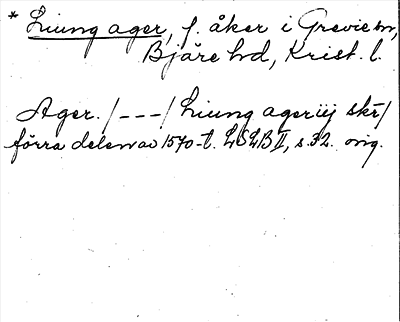 * Liung ager, f. åker i Grevie sn,
Bjäre hd, Krist. l.
Ager. /---/ Liung ager iij skr/
förra delen av 1570-t. LSLB II, s. 32. orig.